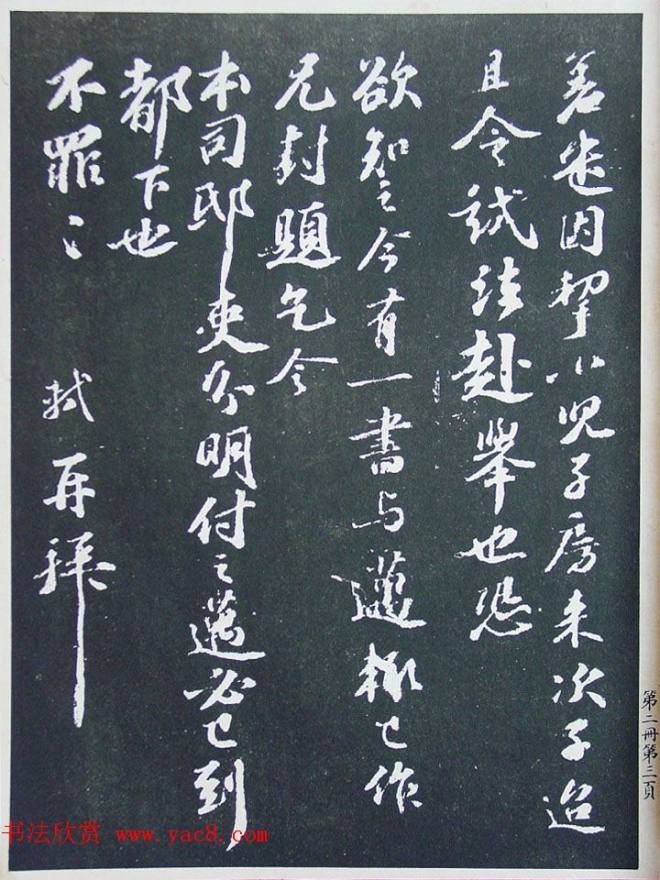 因挈小兒子房未次子迨
且令試法赴舉也恐
欲知之今有一書与邁輒已作
兄封題乞令
本司邸吏分明付之邁必已到
都下也
不罪〻 軾再拜
第二冊第三頁
书法欣赏 www.yac8.com